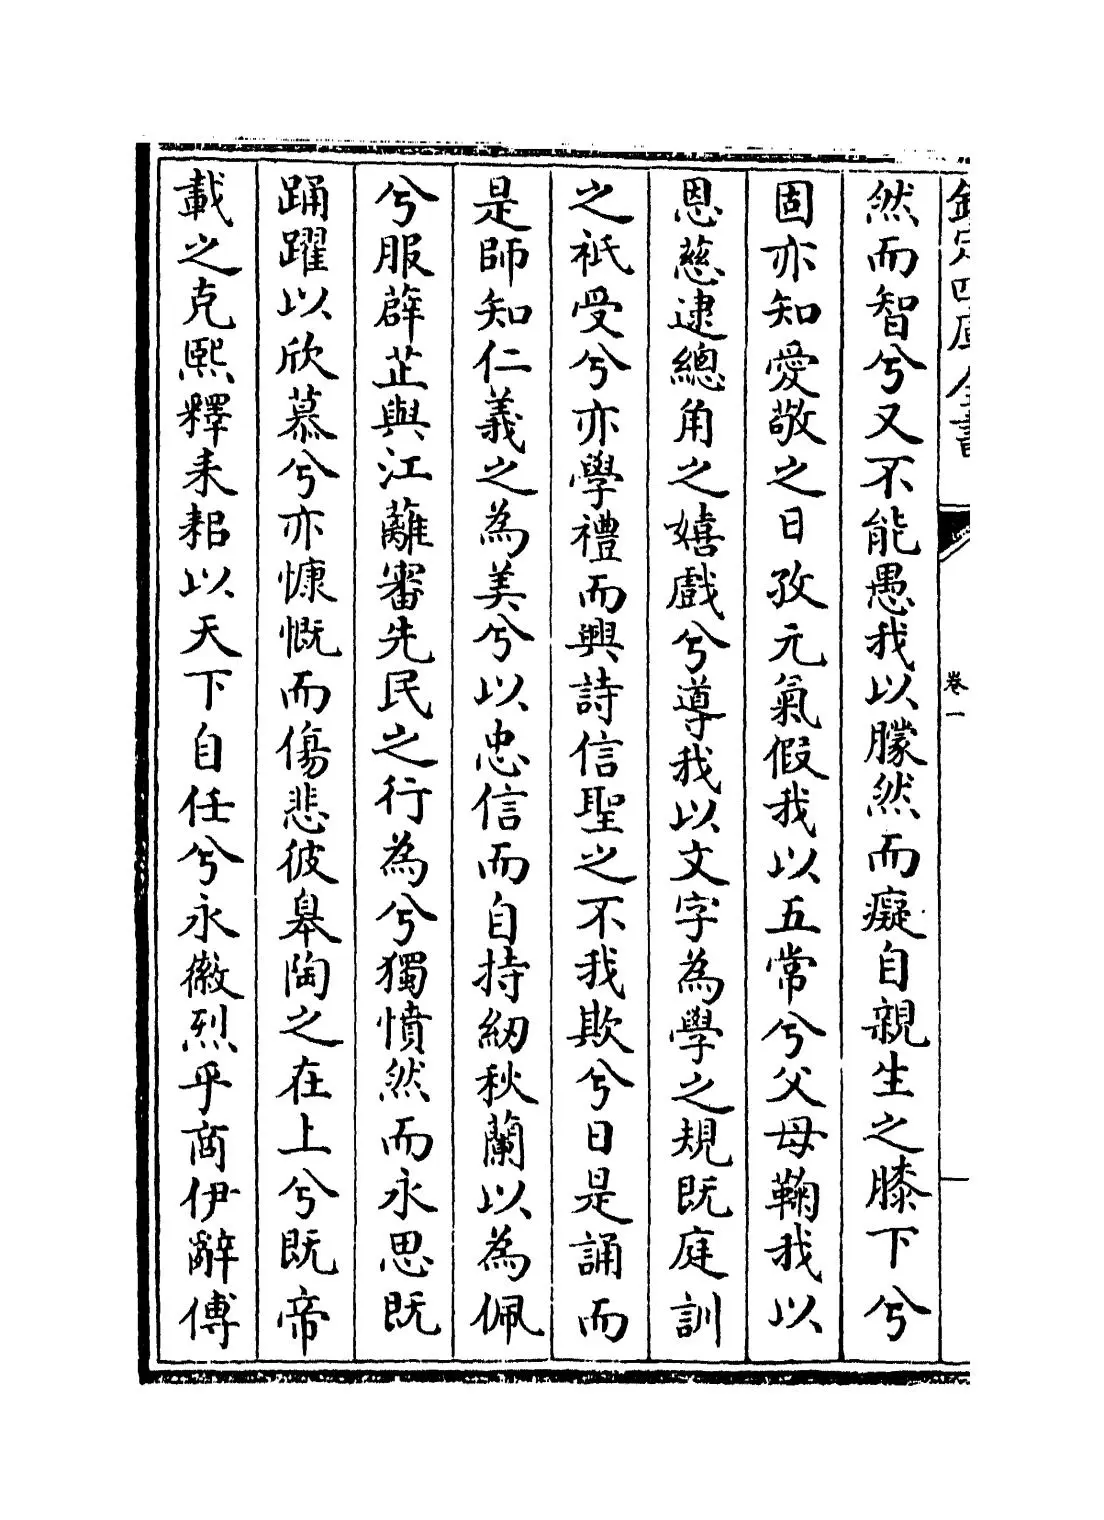 欽定四庫全書
卷一
然而智兮又不能愚我以朦然而癡自親生之膝下兮
固亦知愛敬之日孜元氣假我以五常兮父母鞠我以
恩慈逮總角之嬉戲兮導我以文字為學之規既庭訓
之祇受兮亦學禮而興詩信聖之不我欺兮日是誦而
是師知仁義之為美兮以忠信而自持紉秋蘭以為佩
兮服薜芷與江蘺審先民之行為兮獨憤然而永思既
踊躍以欣慕兮亦慷慨而傷悲彼皋陶之在上兮既帝
載之克熙釋耒耜以天下自任兮永徽烈乎商伊辭傅